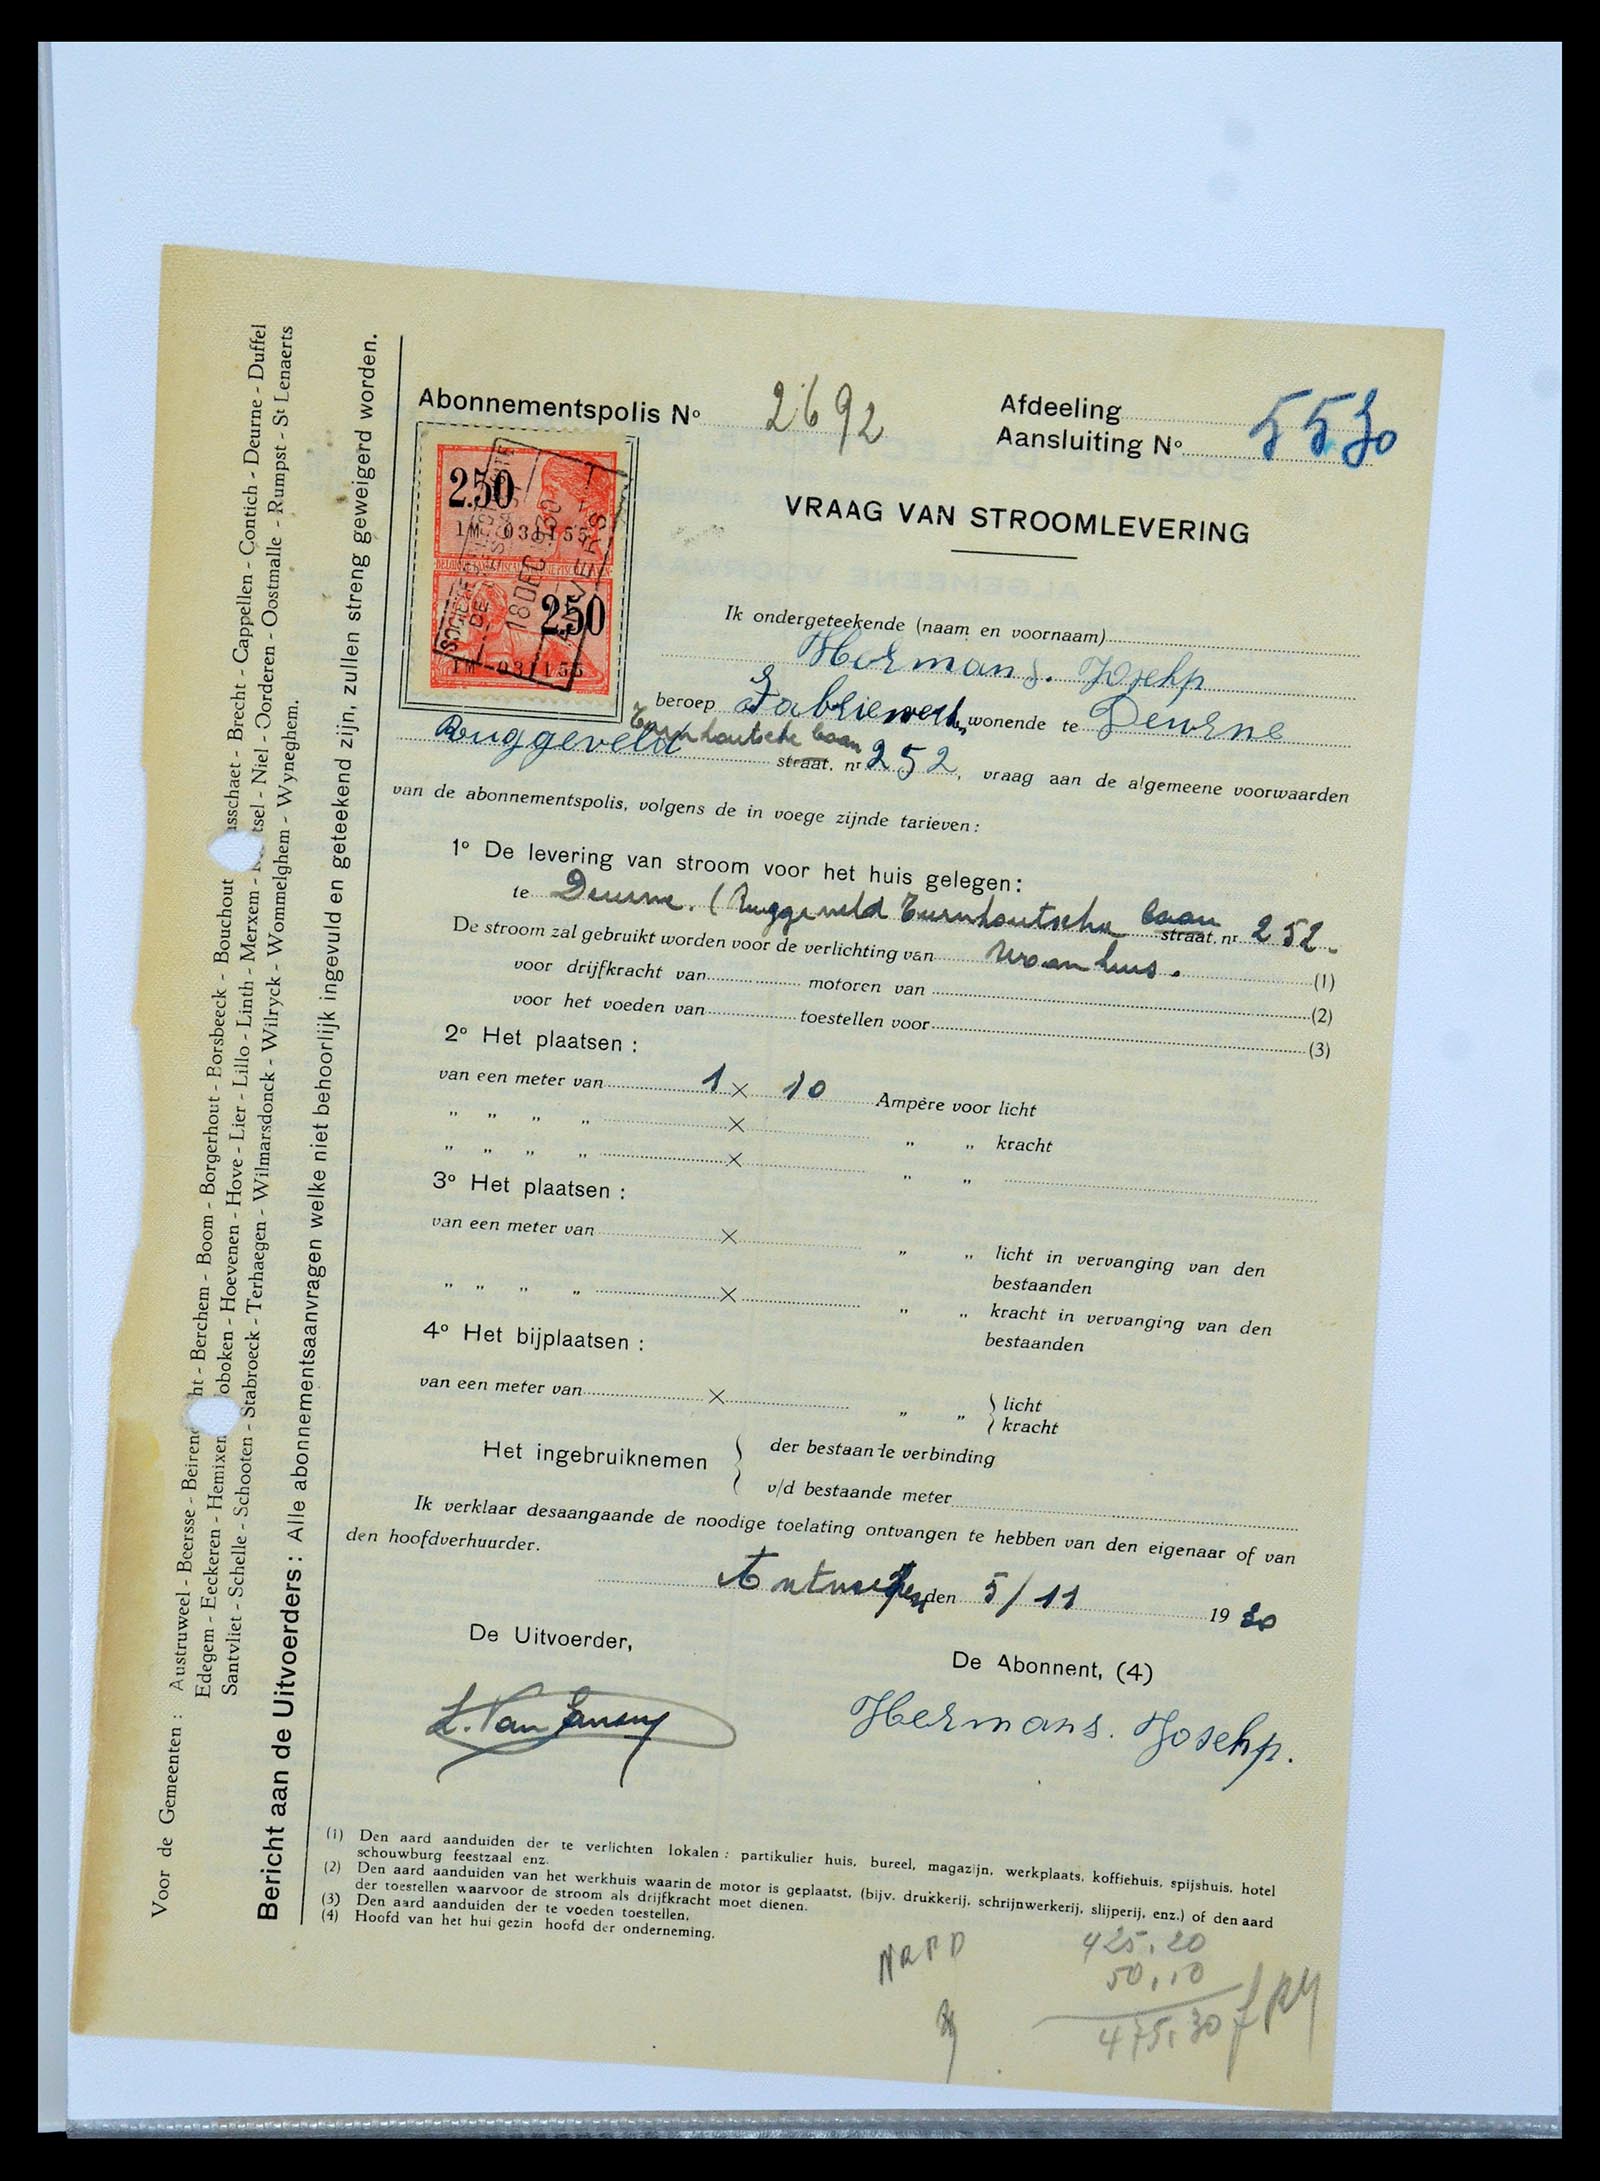 Abonnementspolis No 2692
Afdeeling
Aansluiting No 5530
VRAAG VAN STROOMLEVERING
2.50
1M - 031155
18 DEC 1930
ANVERS
2.50
1M - 031155
Ik ondergeteekende (naam en voornaam)
Hermans. Josehp
beroep Fabriewerk wonende te Deurne
Turnhoutsche baan
Ruggeveld straat, nr 252, vraag aan de algemeene voorwaarden
van de abonnementspolis, volgens de in voege zijnde tarieven:
1o De levering van stroom voor het huis gelegen:
te Deurne. (Ruggeveld Turnhoutsche baan straat, nr 252.
De stroom zal gebruikt worden voor de verlichting van woonhuis. (1)
voor drijfkracht van motoren van (2)
voor het voeden van toestellen voor (3)
2o Het plaatsen:
van een meter van 1 × 10 Ampère voor licht
„ „ „ „ × „ „ kracht
„ „ „ „ × „ „
3o Het plaatsen:
van een meter van × „ „ licht in vervanging van den
bestaanden
„ „ „ „ × „ „ kracht in vervanging van den
bestaanden
4o Het bijplaatsen:
van een meter van × „ „ } licht
kracht
Het ingebruiknemen { der bestaande verbinding
v/d bestaande meter
Ik verklaar desaangaande de noodige toelating ontvangen te hebben van den eigenaar of van
den hoofdverhuurder.
Antwerpen den 5/11 1930
De Uitvoerder,
De Abonnent, (4)
Hermans. Josehp.
(1) Den aard aanduiden der te verlichten lokalen: partikulier huis, bureel, magazijn, werkplaats, koffiehuis, spijshuis, hotel
schouwburg feestzaal enz.
(2) Den aard aanduiden van het werkhuis waarin de motor is geplaatst, (bijv. drukkerij, schrijnwerkerij, slijperij, enz.) of den aard
der toestellen waarvoor de stroom als drijfkracht moet dienen.
(3) Den aard aanduiden der te voeden toestellen.
(4) Hoofd van het huisgezin hoofd der onderneming.
425.20
50,10
475,30
Voor de Gemeenten: Austruweel - Beersse - Beirendrecht - Berchem - Boom - Borgerhout - Borsbeeck - Bouchout - Brasschaet - Brecht - Cappellen - Contich - Deurne - Duffel
Edegem - Eeckeren - Hemixem - Hoboken - Hoevenen - Hove - Lier - Lillo - Linth - Merxem - Mortsel - Niel - Oorderen - Oostmalle - Rumpst - St Lenaerts
Santvliet - Schelle - Schooten - Stabroeck - Terhaegen - Wilmarsdonck - Wilryck - Wommelghem - Wyneghem.
Bericht aan de Uitvoerders: Alle abonnementsaanvragen welke niet behoorlijk ingevuld en geteekend zijn, zullen streng geweigerd worden.